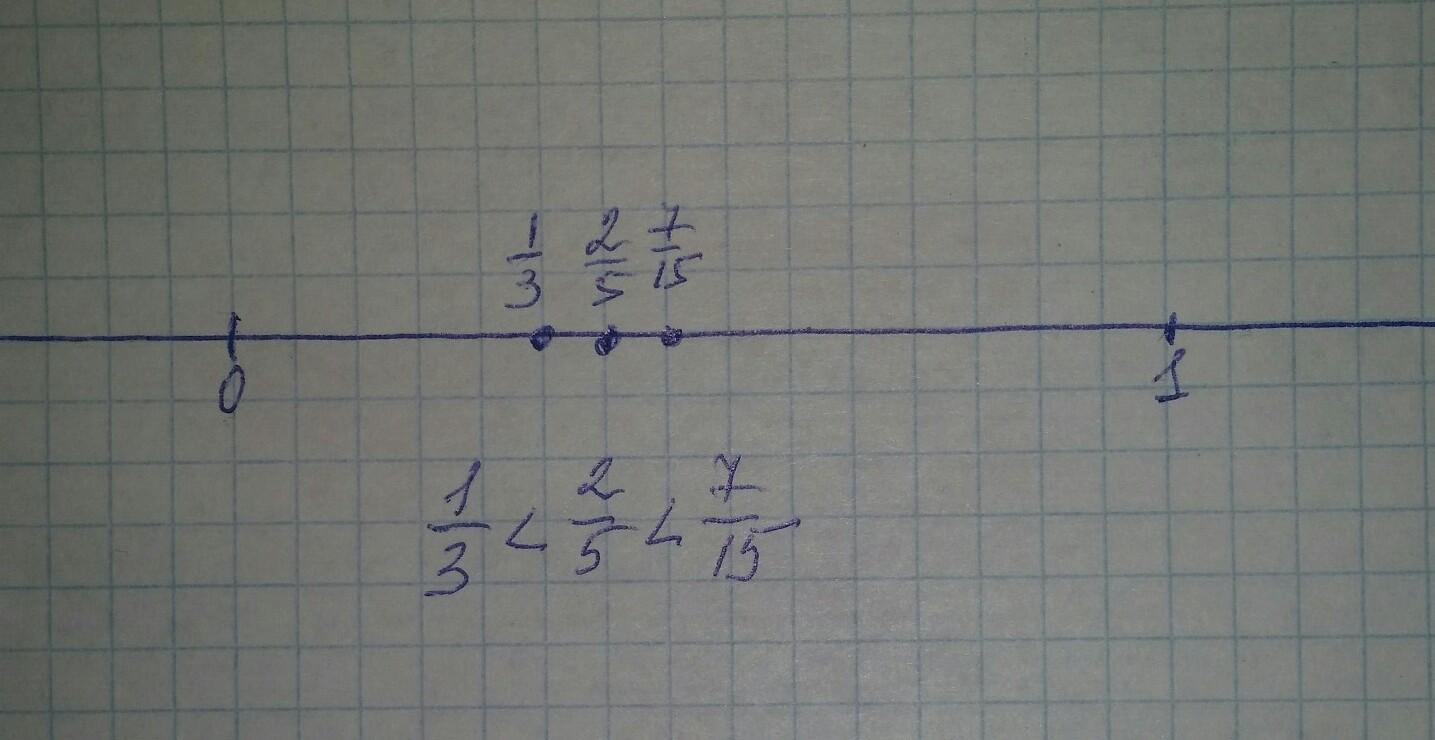 1/3 2/5 7/15
0 1
1/3 < 2/5 < 7/15